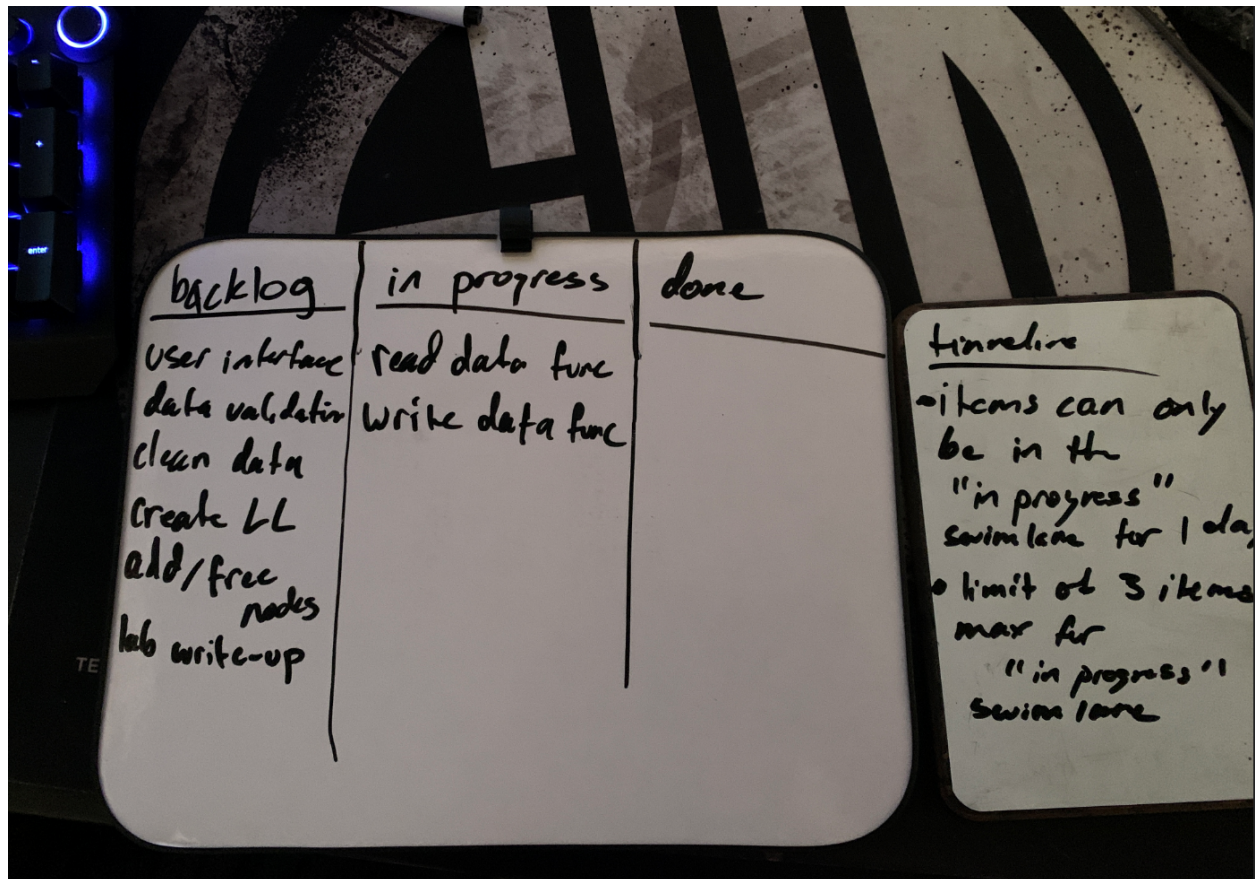 backlog
user interface
data validation
clean data
create LL
add/free
nodes
lab write-up
in progress
read data func
write data func
done
timeline
•items can only
be in the
"in progress"
swimlane for 1 day
• limit of 3 items
max for
"in progress"
swimlane
enter
+
-
TE